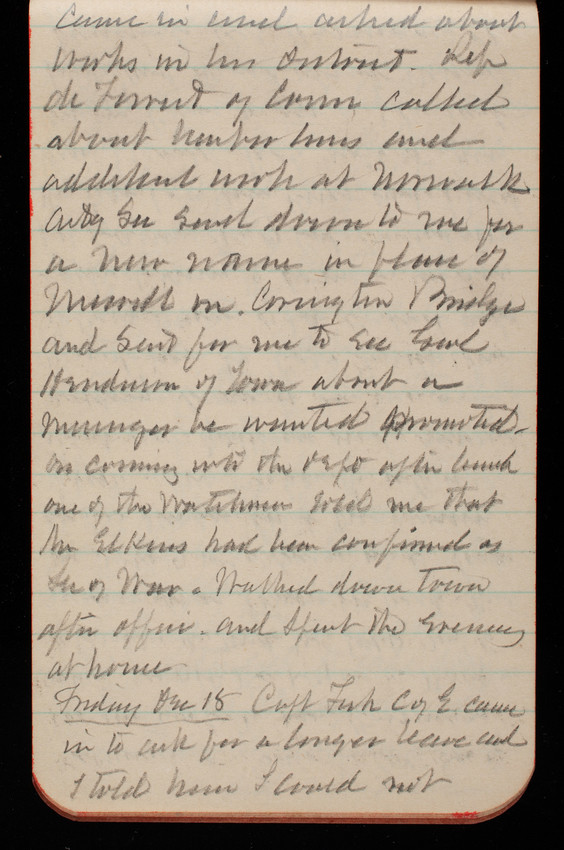 came in and asked about
works in his district. Rep
de Forrest of Conn called
about harbor lines and
additional work at Norwalk
Actg Sec send down to me for
a new name in place of
on Covington Bridge
and sent for me to see
Henderson of Iowa about a
messenger he wanted promoted.
On coming into the dept after lunch
one of the Watchmen told me that
Mr Elkins had been confirmed as
Sec of War. Walked down town
after office. and spent the evening
at home
Friday Dec 18 Capt Fisk C of E came
in to ask for a longer leave and
I told him I could not